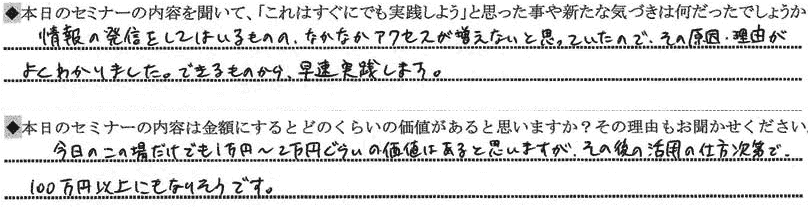 ◆本日のセミナーの内容を聞いて、「これはすぐにでも実践しよう」と思った事や新たな気づきは何だったでしょうか
情報の発信をしてはいるものの、なかなかアクセスが増えないと思っていたので、その原因・理由が
よくわかりました。できるものから、早速実践します。
◆本日のセミナーの内容は金額にするとどのくらいの価値があると思いますか？その理由もお聞かせください
今日のこの場だけでも1万円〜2万円ぐらいの価値はあると思いますが、その後の活用の仕方次第で、
100万円以上にもなりそうです。